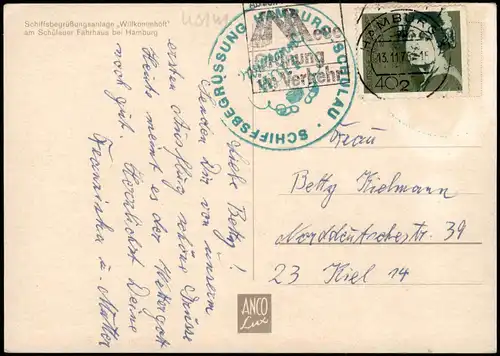 Schiffsbegrüßungsanlage „Willkommhöft"
am Schulauer Fährhaus bei Hamburg
Liebe Betty!
Senden Dir von unserm
ersten Ausflug schöne Grüsse
Heute meint es der Wettergott
noch gut. Herzlichst Deine
Franziska u. Mutter
SCHIFFSBEGRÜSSUNG HAMBURG-SCHULAU
im Verkehr
HAMBURG
13.11.7
2
40
Frau
Betty Kielmann
Norddeutschestr. 39
23 Kiel 14
ANCO
Lux